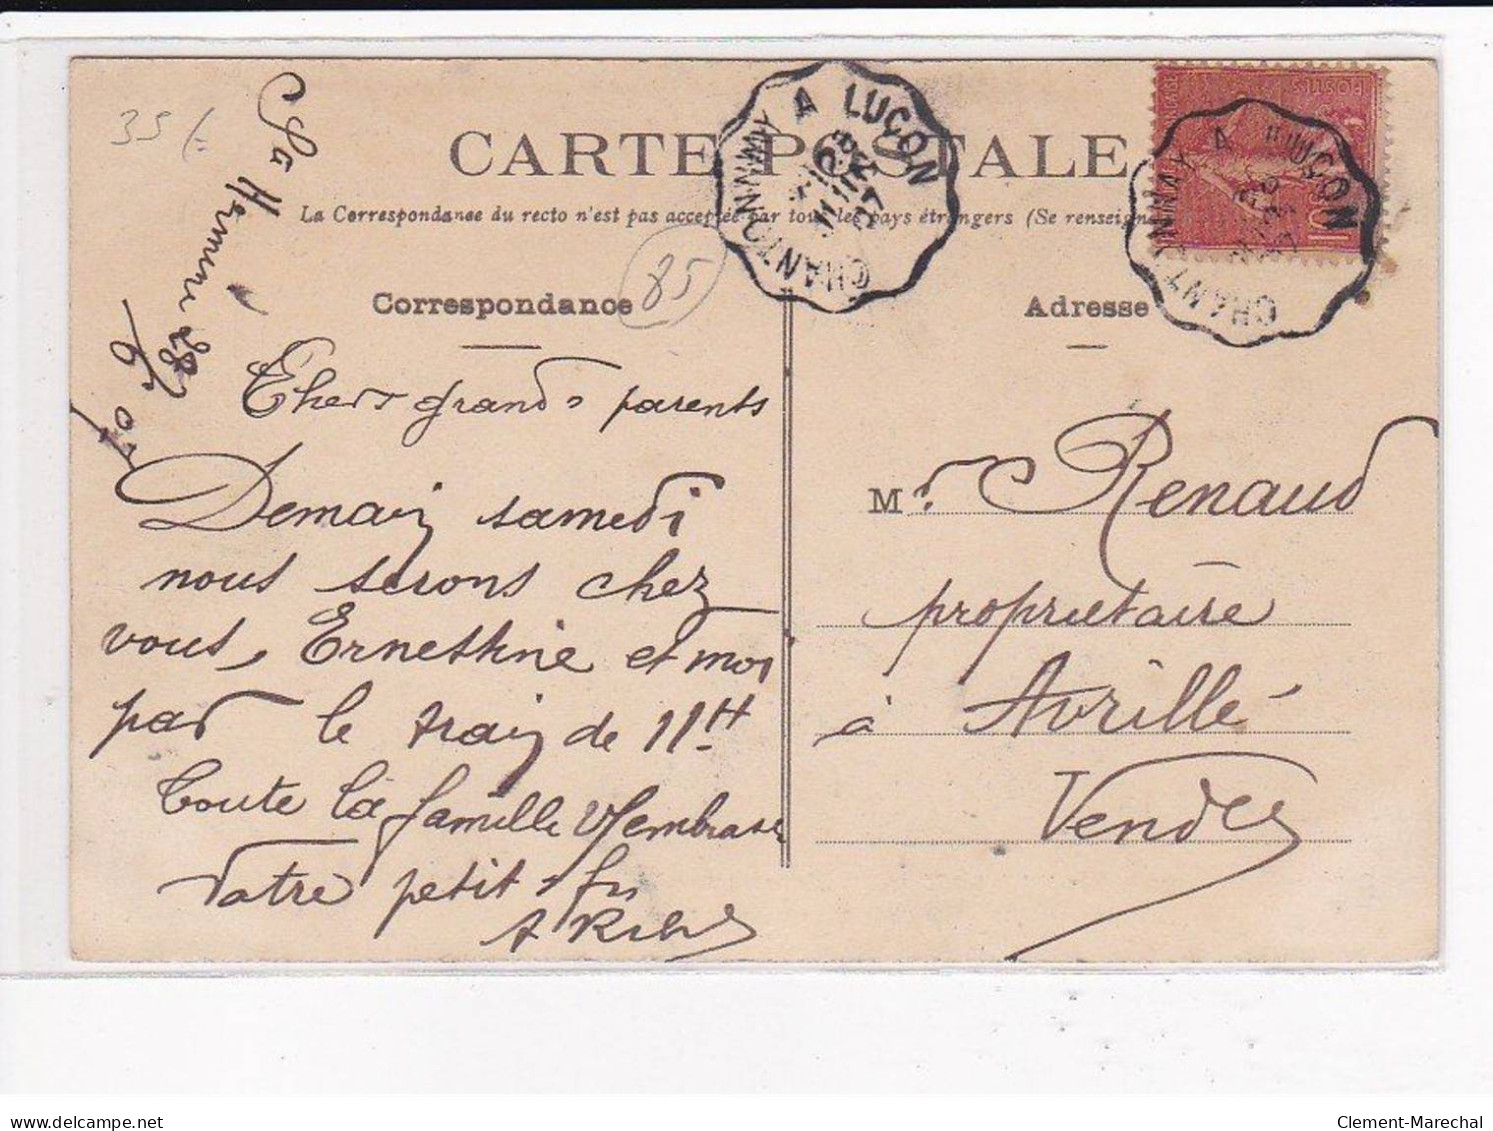 35 f
Ste Hermine 28/6 07
CARTE POSTALE
La Correspondance du recto n'est pas acceptée par tous les pays étrangers (Se renseign
CHANTONNAY A LUÇON
CHANTONNAY A LUÇON
POSTES
10
Correspondance
85
Adresse
Chers grands parents
Demain samedi
nous serons chez
vous, Ernestine et moi
par le train de 11H
Toute la famille v/embrasse
Votre petit-fils
M r. Renaud
propriétaire
à Avrillé
Vendée
delcampe.net
Clement-Marechal